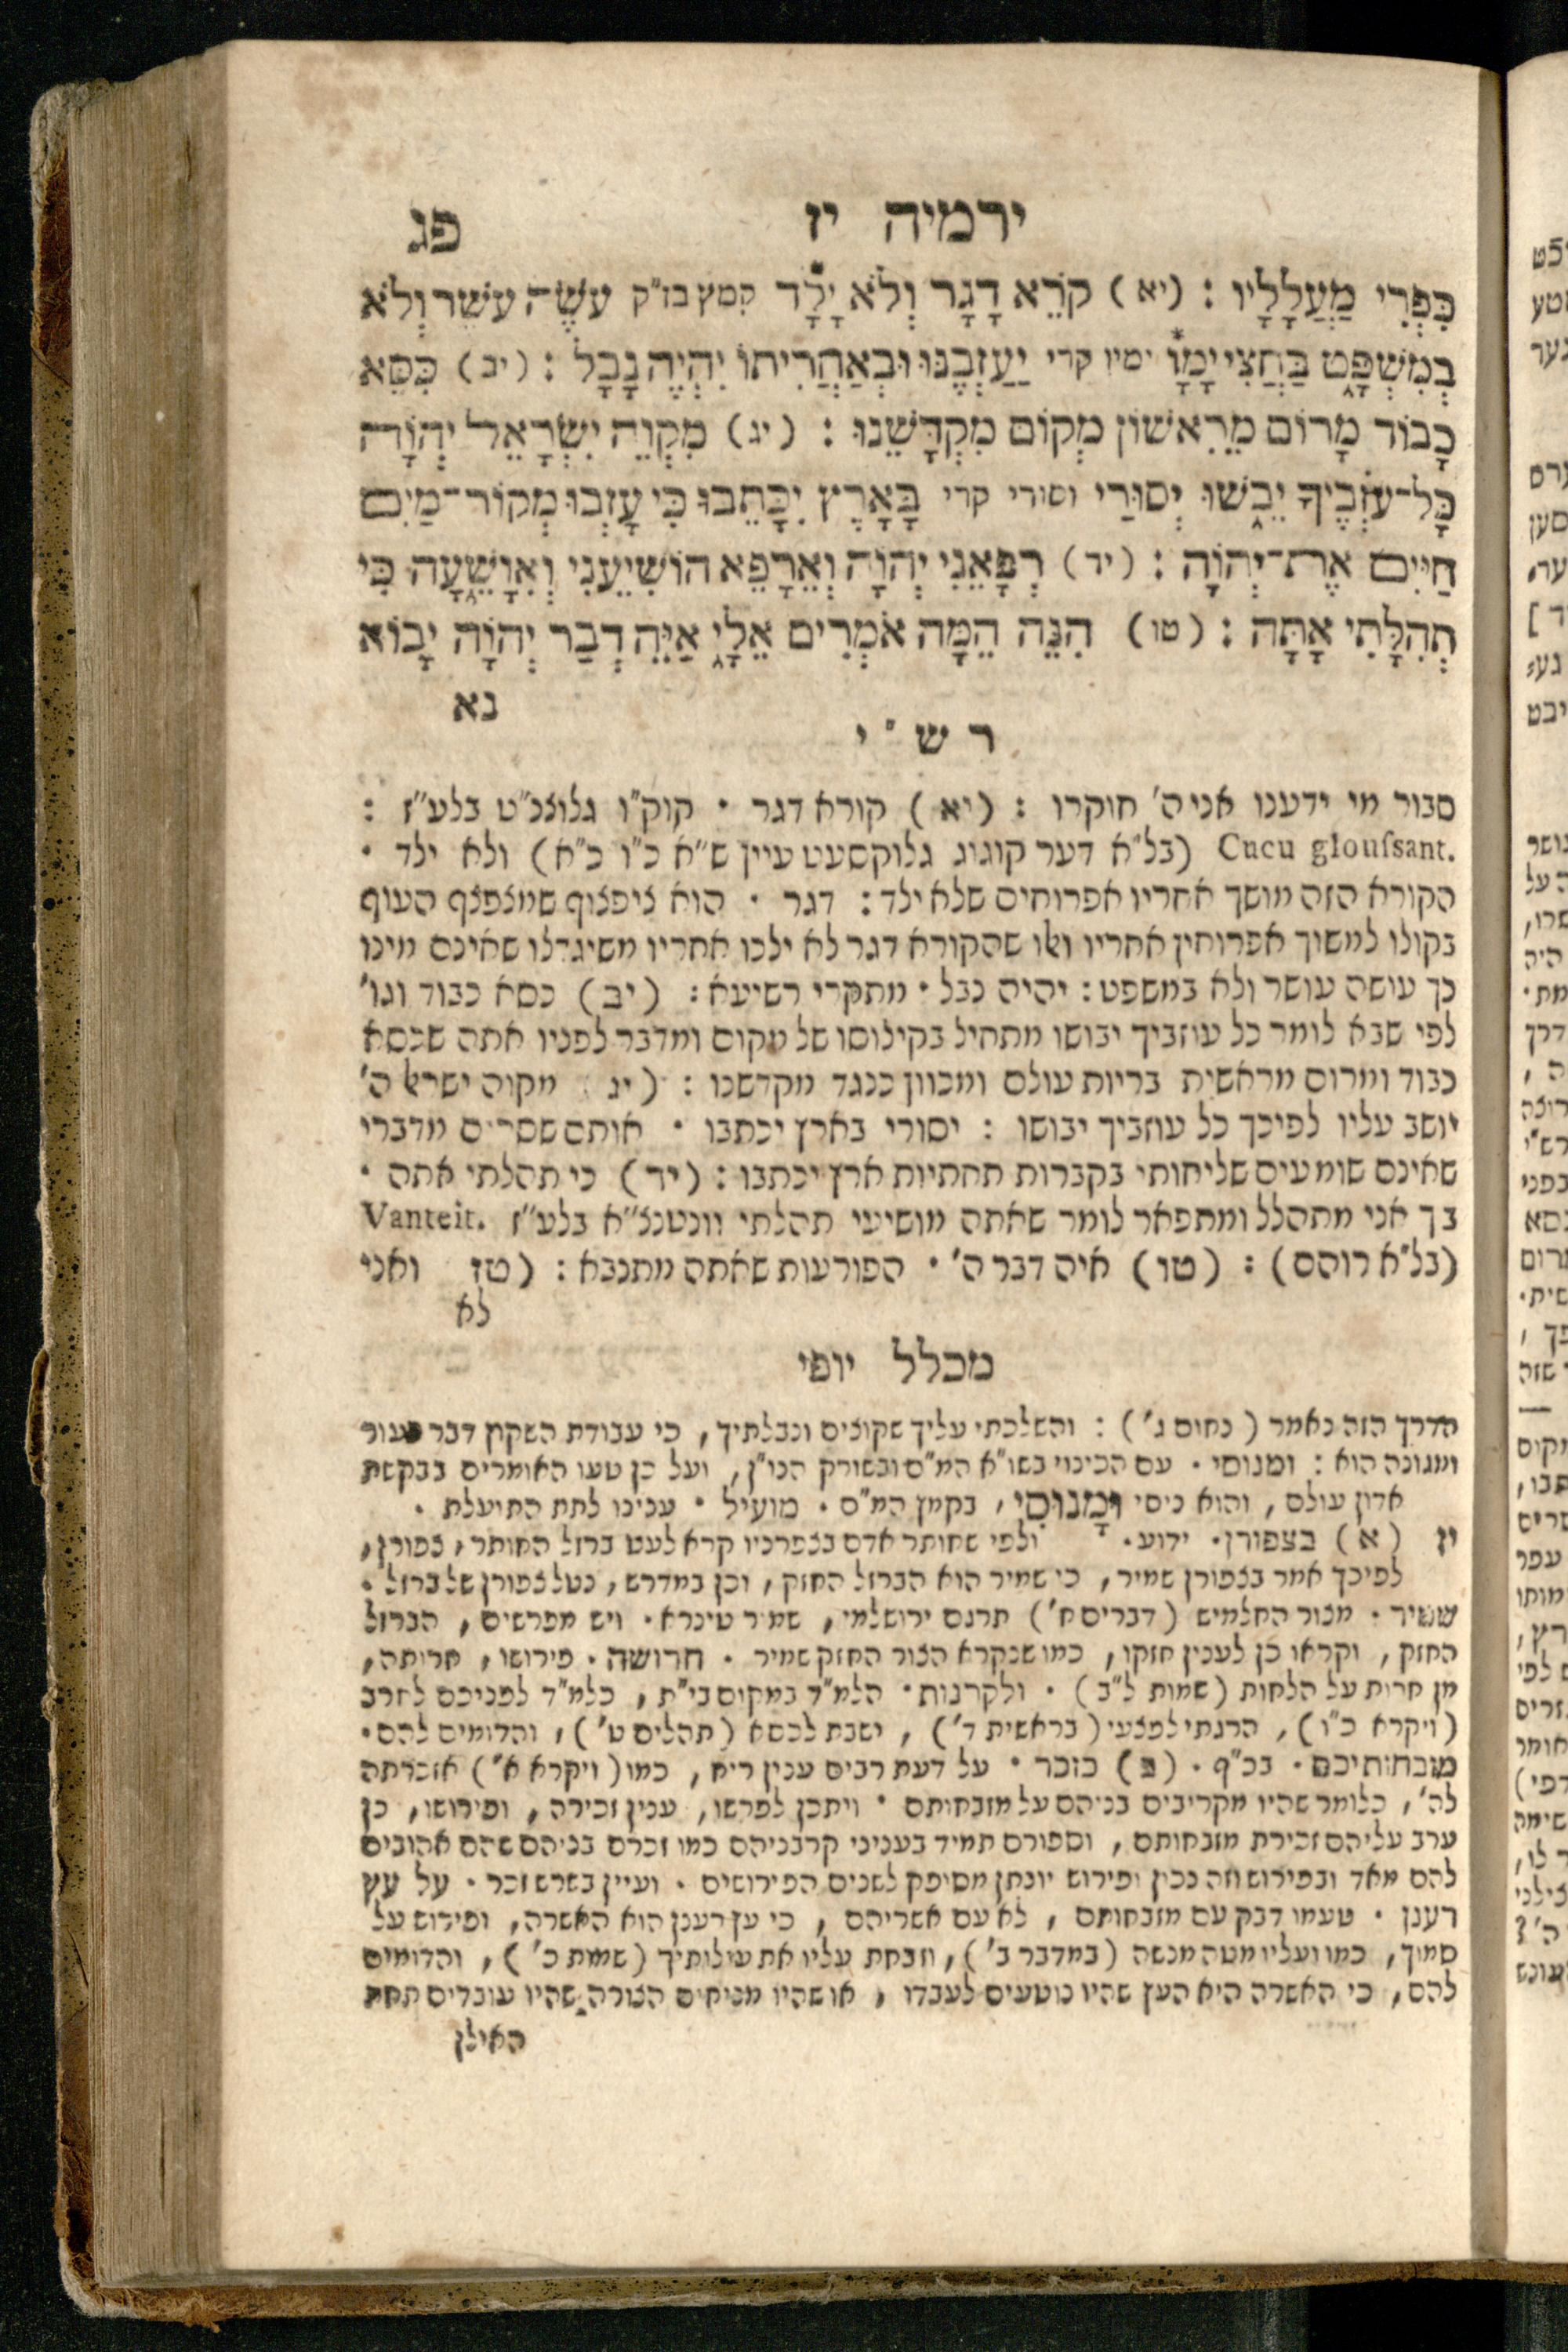 ירמיה יז
פג
כִּפְרִי מַעֲלָלָיו : (יא) קֹרֵא דָגָר וְלֹא יָלָד קמץ בז"ק עֹשֶׂה עֹשֶׁר וְלֹא
בְמִשְׁפָּט בַּחֲצִי יָמָו ימיו קרי יַעַזְבֶנּוּ וּבְאַחֲרִיתוֹ יִהְיֶה נָבָל : (יב) כִּסֵּא
כָבוֹד מָרוֹם מֵרִאשׁוֹן מְקוֹם מִקְדָּשֵׁנוּ : (יג) מִקְוֵה יִשְׂרָאֵל יְהֹוָה
כָּל־עֹזְבֶיךָ יֵבֹשׁוּ יְסוּרַי וסורי קרי בָּאָרֶץ יִכָּתֵבוּ כִּי עָזְבוּ מְקוֹר־מַיִם
חַיִּים אֶת־יְהֹוָה : (יד) רְפָאֵנִי יְהֹוָה וְאֵרָפֵא הוֹשִׁיעֵנִי וְאִוָּשֵׁעָה כִּי
תְהִלָּתִי אָתָּה : (טו) הִנֵּה הֵמָּה אֹמְרִים אֵלָי אַיֵּה דְבַר יְהֹוָה יָבוֹא
נא
רש"י
סבור מי ידענו אני ה' חוקרו : (יא) קורא דגר • קוק"ו גלוצנ"ט בלע"ז :
Cucu glouſsant. (בל"א דער קוגוג גלוקסעט עיין ש"א כ"ו כ"א) ולא ילד •
הקורא הזה מושך אחריו אפרוחים שלא ילד : דגר • הוא ציפצוף שמצפצף העוף
בקולו למשוך אפרוחין אחריו ואלו שהקורא דגר לא ילכו אחריו משיגדלו שאינם מינו
כך עושה עושר ולא במשפט : יהיה נבל • מתקרי רשיעא : (יב) כסא כבוד וגו'
לפי שבא לומר כל עוזביך יבושו מתחיל בקילוסו של מקום ומדבר לפניו אתה שכסא
כבוד ומרום מראשית בריות עולם ומכוון כנגד מקדשנו : (יג) מקוה ישראל ה'
יושב עליו לפיכך כל עוזביך יבושו : יסורי בארץ יכתבו • אותם שסרים מדברי
שאינם שומעים שליחותי בקברות תחתיות ארץ יכתבו : (יד) כי תהלתי אתה •
בך אני מתהלל ומתפאר לומר שאתה מושיעי תהלתי וונטנצ"א בלע"ז Vanteit.
(בל"א רוהם) : (טו) איה דבר ה' • הפורעות שאתה מתנבא : (טז ואני
לא
מכלל יופי
הדרך הזה נאמר (נחום ג') : והשלכתי עליך שקוצים ונבלתיך, כי עבודת השקוץ דבר
ומגונה הוא : ומנוסי • עם הכינוי בשו"א המ"ם ובשורק הנו"ן, ועל כן טעו האומרים בבקשת
אדון עולם, והוא ניסי וּמָנוּסִי, בקמץ המ"ם • מועיל • ענינו לתת התועלת •
יז (א) בצפורן • ידוע • ולפי שחותר אדם בצפרניו קרא לעט ברזל החותר, צפורן,
לפיכך אמר בצפורן שמיר, כי שמיר הוא הברזל החזק, וכן במדרש, נטל צפורן של ברזל •
שמיר • מצור החלמיש (דברים ח') תרגם ירושלמי, שמיר טינרא • ויש מפרשים, הברזל
החזק, וקראו כן לענין חזקו, כמו שנקרא הצור החזק שמיר • חרושה • פירושו, חרותה,
מן חרות על הלחות (שמות ל"ב) • ולקרנות • הלמ"ד במקום בי"ת, כלמ"ד לפניכם לחרב
(ויקרא כ"ו), הרגתי לפצעי (בראשית ד'), ישבת לכסא (תהלים ט'), והדומים להם •
מזבחותיכם • בכ"ף • (ב) כזכר • על דעת רבים ענין ריח, כמו (ויקרא א') אזכרתה
לה', כלומר שהיו מקריבים בניהם על מזבחותם • ויתכן לפרשו, ענין זכירה, ופירושו, כן
ערב עליהם זכירת מזבחותם, וספורם תמיד בעניני קרבניהם כמו זכרם בניהם שהם אהובים
להם מאד ובפירוש וזה נכון ופירוש יונתן מסיפק לשנים הפירושים • ועיין בשרש זכר • על עץ
רענן • טעמו דבק עם מזבחותם, לא עם אשריהם, כי עץ רענן הוא האשרה, ופירוש על
סמוך, כמו ועליו מטה מנשה (במדבר ב'), וזבחת עליו את עולותיך (שמות כ'), והדומים
להם, כי האשרה היא העץ שהיו נוטעים לעבדו, או שהיו מניחים הצורה שהיו עובדים תחת
האילן